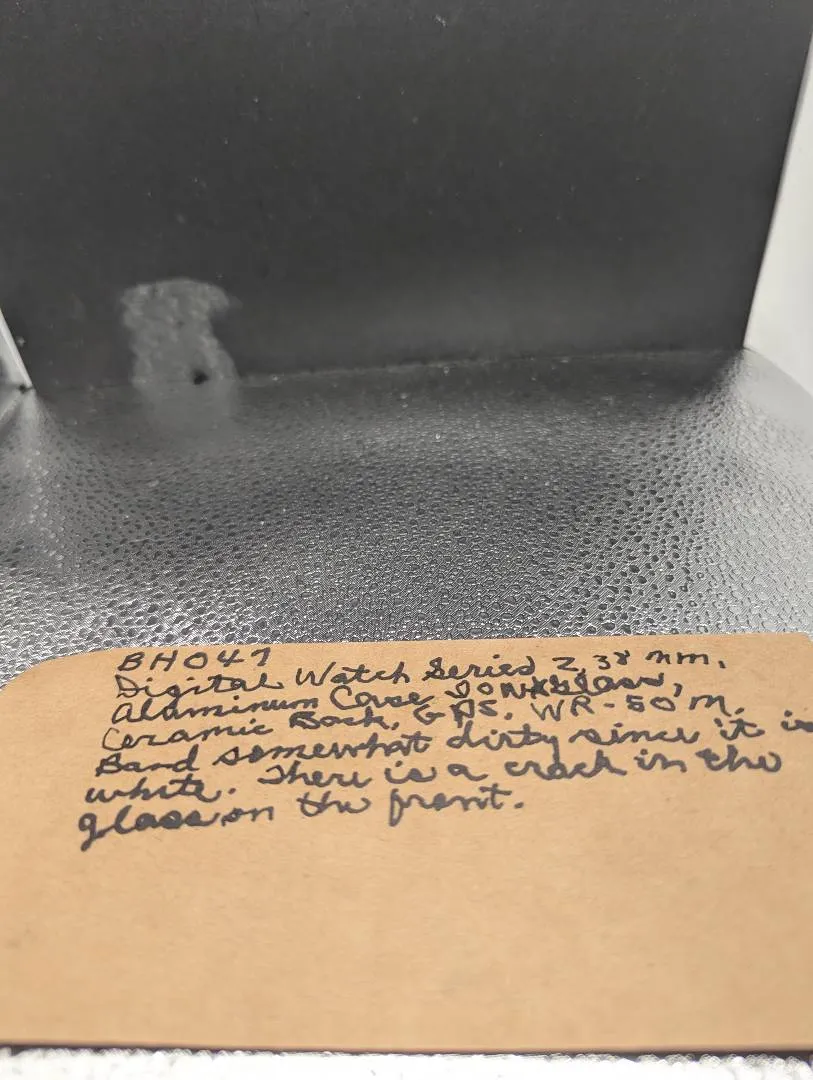 BH047
Digital Watch Series 2, 38 mm,
Aluminum Case, ION-X Glass,
Ceramic Back, GPS, WR-50 M.
Band somewhat dirty since it is
white. There is a crack in the
glass on the front.